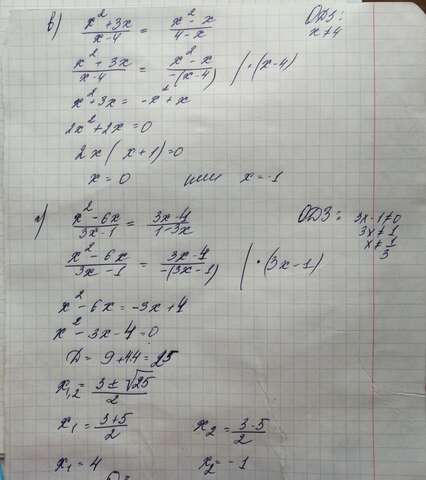 в) (x² + 3x)/(x - 4) = (x² - x)/(4 - x) ОДЗ: x ≠ 4
(x² + 3x)/(x - 4) = (x² - x)/(-(x - 4)) | · (x - 4)
x² + 3x = -x² + x
2x² + 2x = 0
2x(x + 1) = 0
x = 0 или x = -1
г) (x² - 6x)/(3x - 1) = (3x - 4)/(1 - 3x) ОДЗ: 3x - 1 ≠ 0
3x ≠ 1
x ≠ 1/3
(x² - 6x)/(3x - 1) = (3x - 4)/(-(3x - 1)) | · (3x - 1)
x² - 6x = -3x + 4
x² - 3x - 4 = 0
D = 9 + 4·4 = 25
x₁,₂ = (3 ± √25)/2
x₁ = (3 + 5)/2 x₂ = (3 - 5)/2
x₁ = 4 x₂ = -1